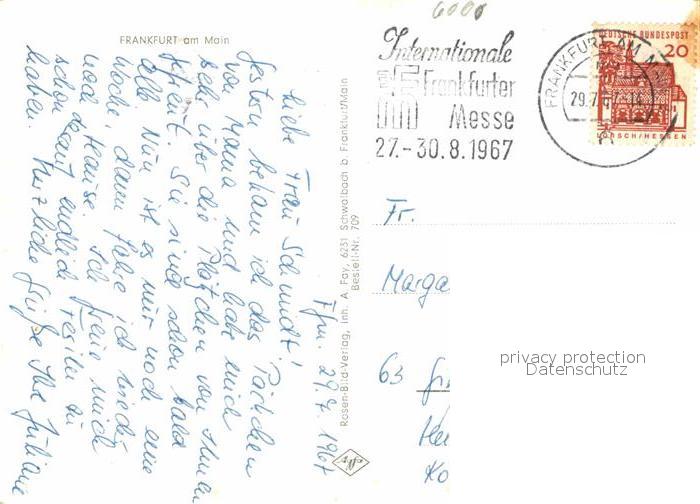 FRANKFURT am Main
Ffm. 29.7.1967
Liebe Frau Schmidt,
gestern bekam ich das Päckchen
von Mama und habe mich
sehr über die Plätzchen von Ihnen
gefreut. Sie sind schon bald
alle. Nun ist es nur noch eine
Woche, dann fahre ich wieder
nach Hause. Ich freue mich
schon drauf endlich Ferien zu
haben. Herzliche Grüße Ihre Juliane
Rosen-Bild-Verlag, Inh. A. Fay, 6231 Schwalbach b. Frankfurt/Main
Bestell-Nr. 709
Agfa
6000
Internationale
Frankfurter
Messe
27.-30.8.1967
FRANKFURT AM
29.7.
DEUTSCHE BUNDESPOST
20
LORSCH/HESSEN
Fr.
Marga
63
Ko
privacy protection
Datenschutz